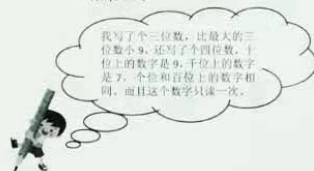 我写了个三位数，比最大的三
位数小 9，还写了个四位数，十
位上的数字是 9，千位上的数字
是 7，个位和百位上的数字相
同，而且这个数字只读一次。